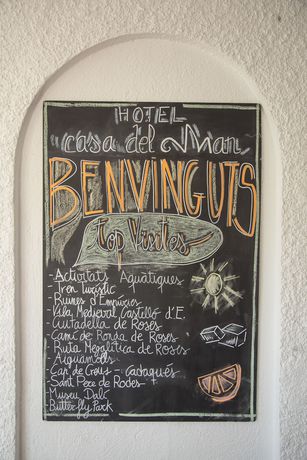 HOTEL
casa del Mar
BENVINGUTS
Top Visites
- Activitats Aquàtiques
- Tren turístic
- Ruines d'Empúries
- Vila Medieval Castelló d'E.
- Ciutadella de Roses
- Camí de Ronda de Roses
- Ruta Megalítica de Roses
- Aiguamolls
- Cap de Creus - Cadaqués
- Sant Pere de Rodes -
- Museu Dalí
- Butterfly Park